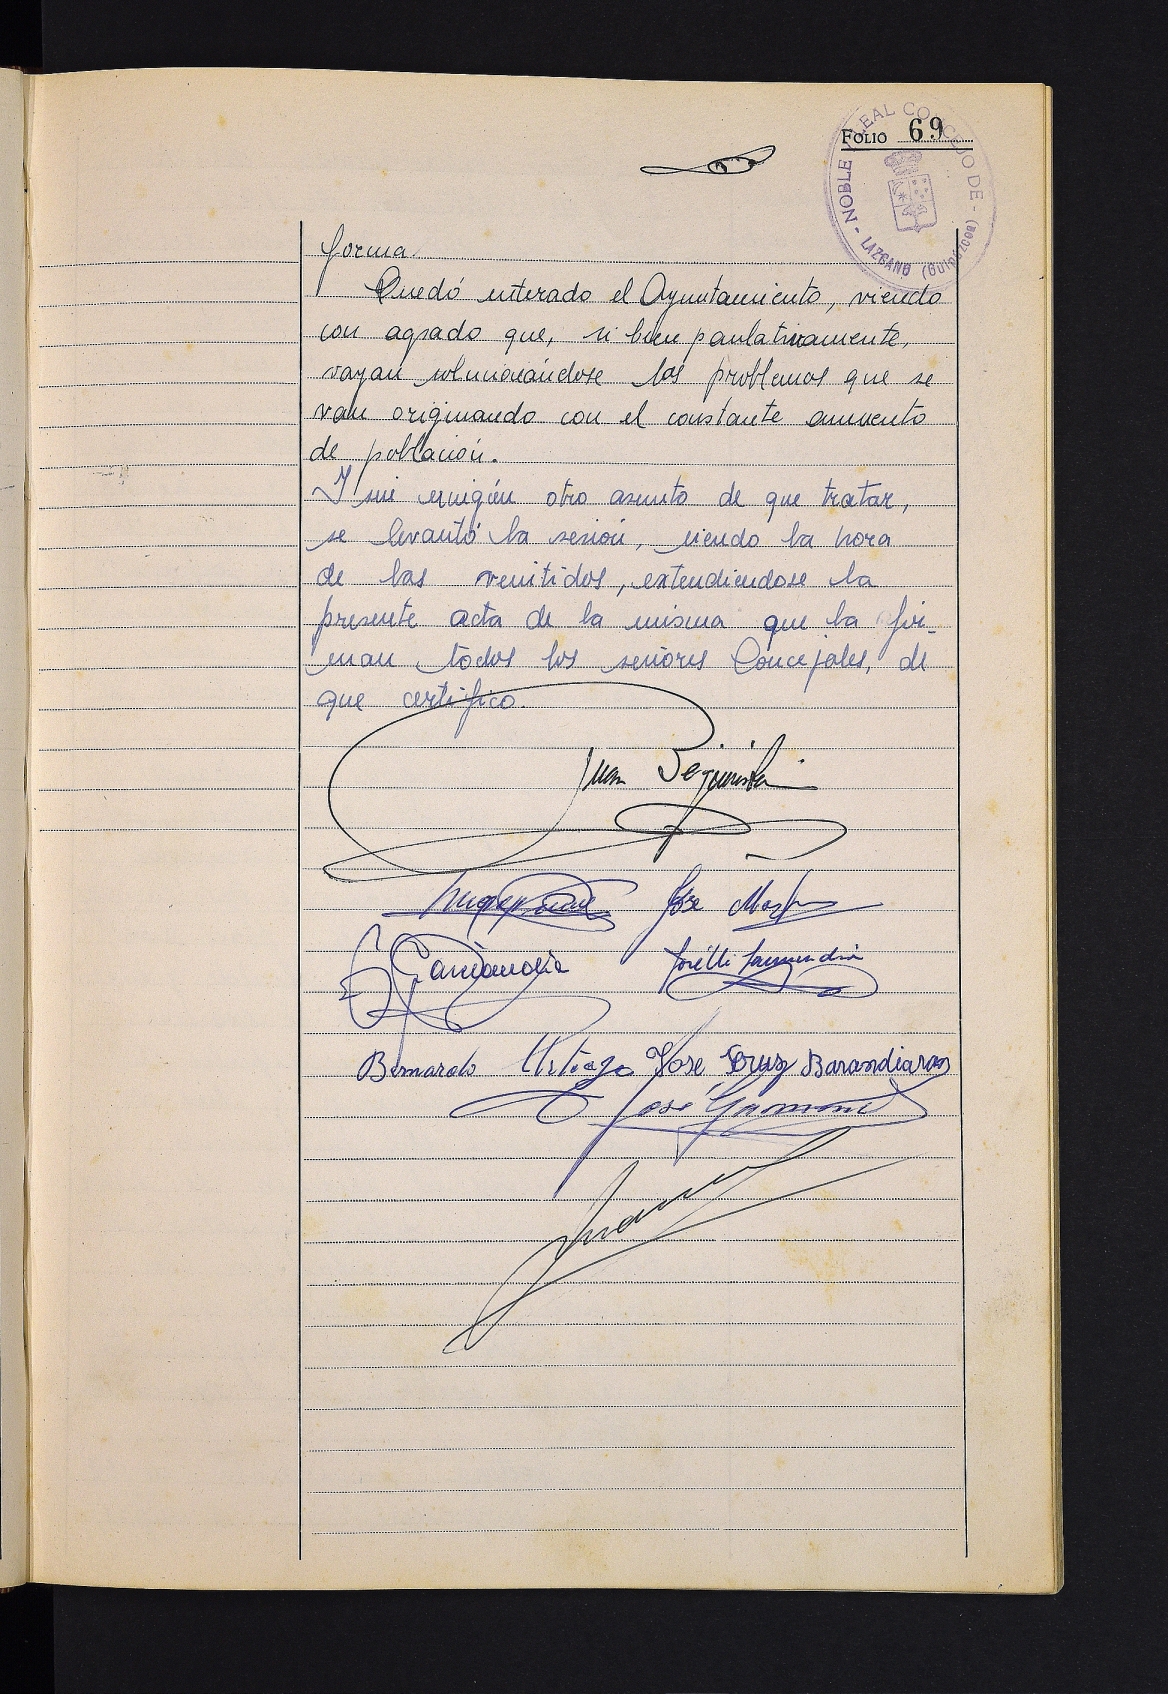 FOLIO 69
NOBLE Y LEAL CONCEJO DE - LAZCANO (Guipúzcoa) -
forma.
Quedó enterado el Ayuntamiento, viendo
con agrado que, si bien paulativamente,
vayan solucionándose los problemas que se
van originando con el constante aumento
de población.
Y sin ningún otro asunto de que tratar,
se levantó la sesión, siendo la hora
de las veintidos, extendiendose la
presente acta de la misma que la fir-
man todos los señores Concejales, de
que certifico.
Juan
José
Bernardo Urtiaga José Cruz Barandiaran
José